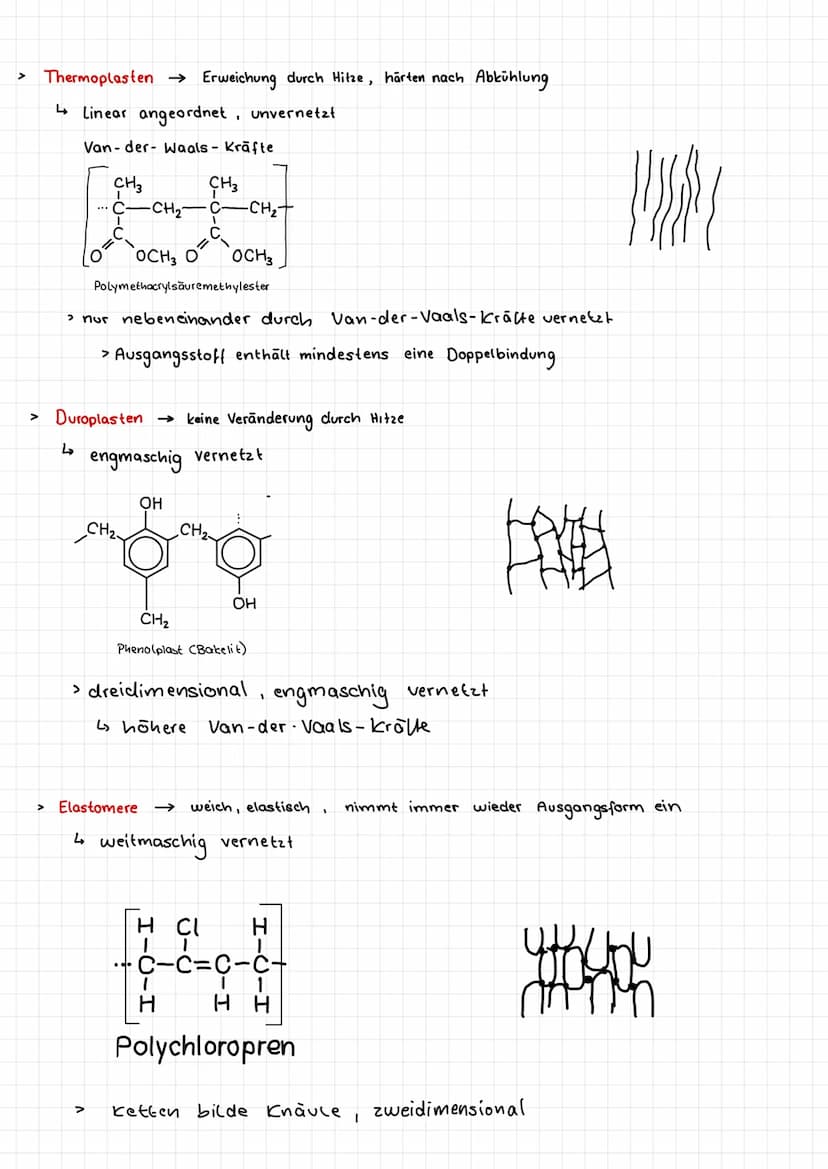 > Thermoplasten → Erweichung durch Hitze, härten nach Abkühlung
↳ Linear angeordnet, unvernetzt
Van-der-Waals-Kräfte
CH3 CH3
··· C—CH2—C—CH2
C C
O OCH3 O OCH3
Polymethacrylsäuremethylester
> nur nebeneinander durch Van-der-Vaals-Kräfte vernetzt
> Ausgangsstoff enthält mindestens eine Doppelbindung
> Duroplasten → keine Veränderung durch Hitze
↳ engmaschig vernetzt
OH
CH2 CH2
OH
CH2
Phenolplast (Bakelit)
> dreidimensional, engmaschig vernetzt
↳ höhere Van-der-Vaals-Kräfte
> Elastomere → weich, elastisch, nimmt immer wieder Ausgangsform ein
↳ weitmaschig vernetzt
H Cl H
··· C–C=C–C
H H H
Polychloropren
> Ketten bilde Knäule, zweidimensional